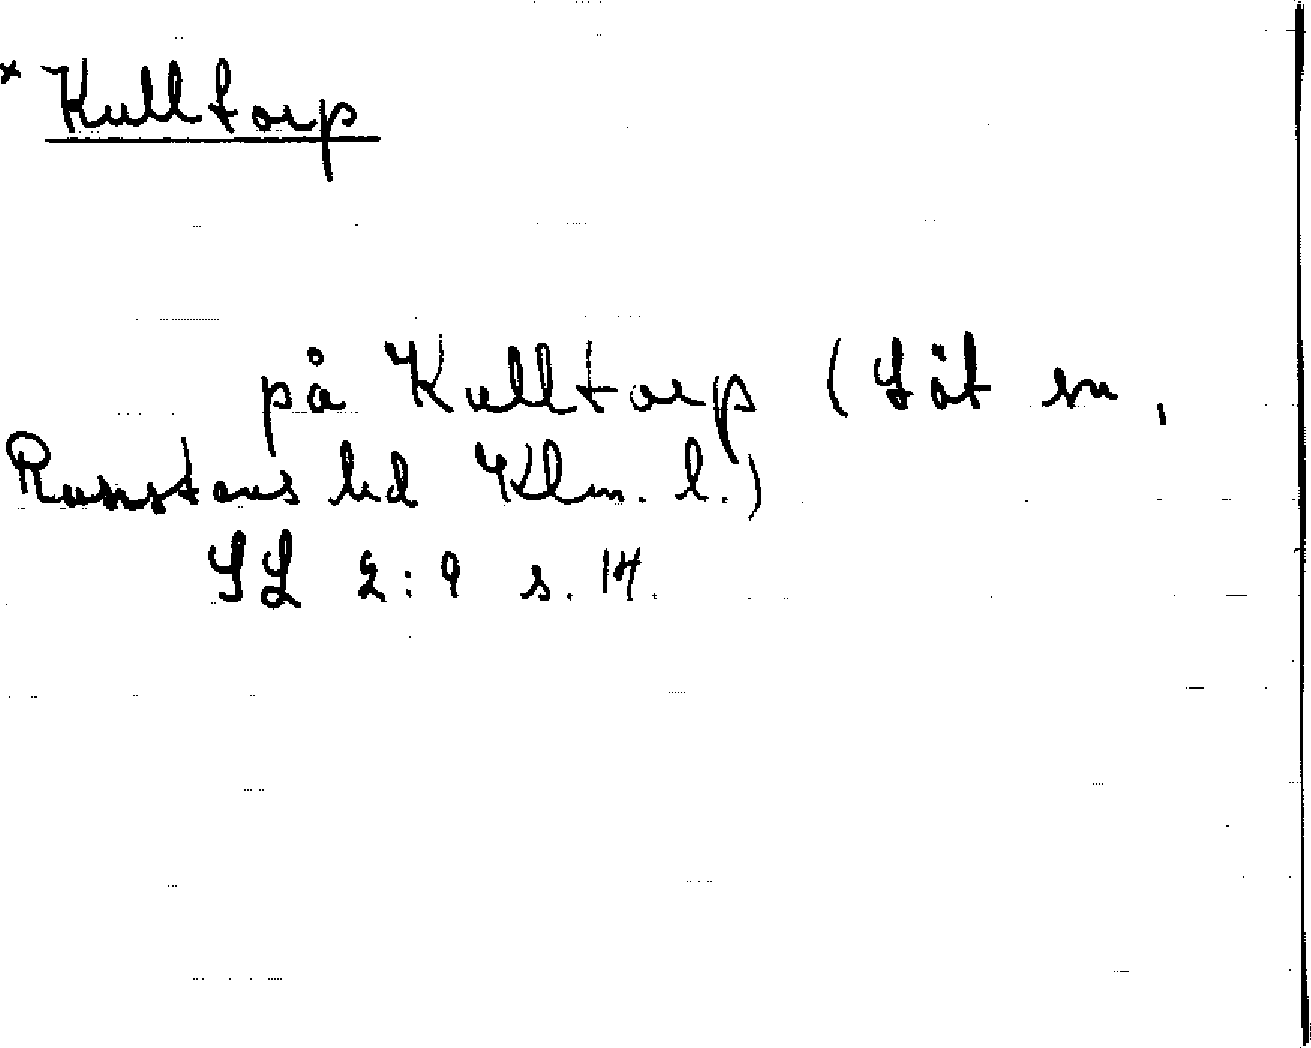 * Kulltorp
på Kulltorp (Löt sn,
Runstens hd Klm. l.)
SL 2:9 s. 14.